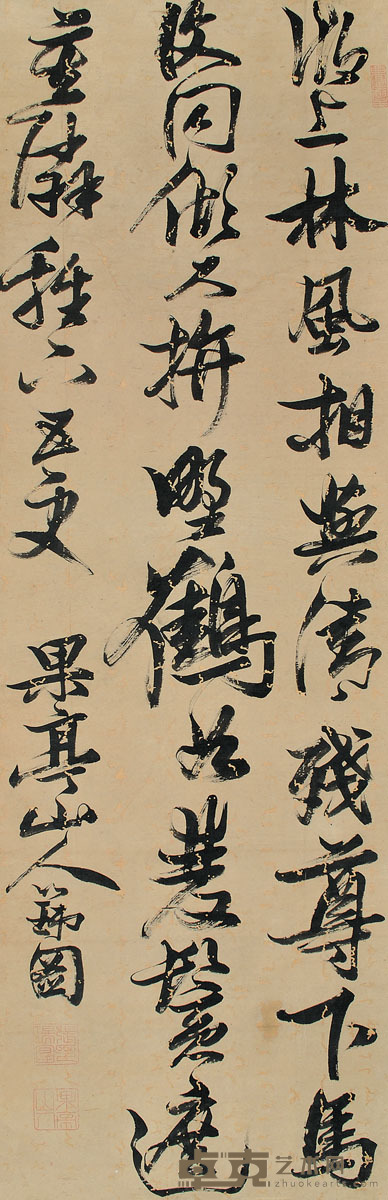 湖上林風相與清殘尊下馬
復同傾久拚野鶴如雙鬢遮
莫隣雞下五更
果亭山人瑞圖
卓克艺术网
zhuokearts.com